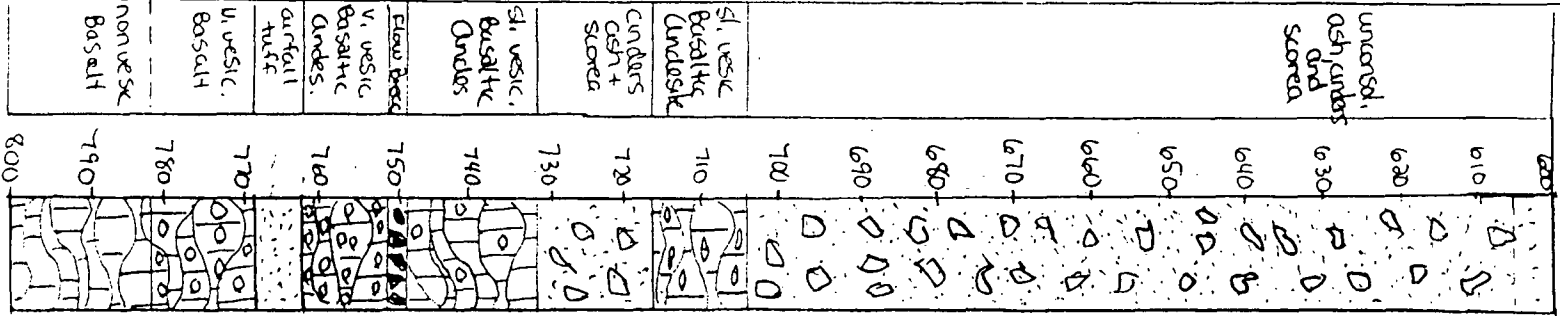 unconsol.
ash, cinders
and
scorea
sl. vesic
Basaltic
Andesite
cinders
ash +
scorea
sl. vesic.
Basaltic
Andes
Flow Brecc
V. vesic.
Basaltic
Andes.
airfall
tuff
V. vesic.
Basalt
nonvesic
Basalt
600
610
620
630
640
650
660
670
680
690
700
710
720
730
740
750
760
770
780
790
800